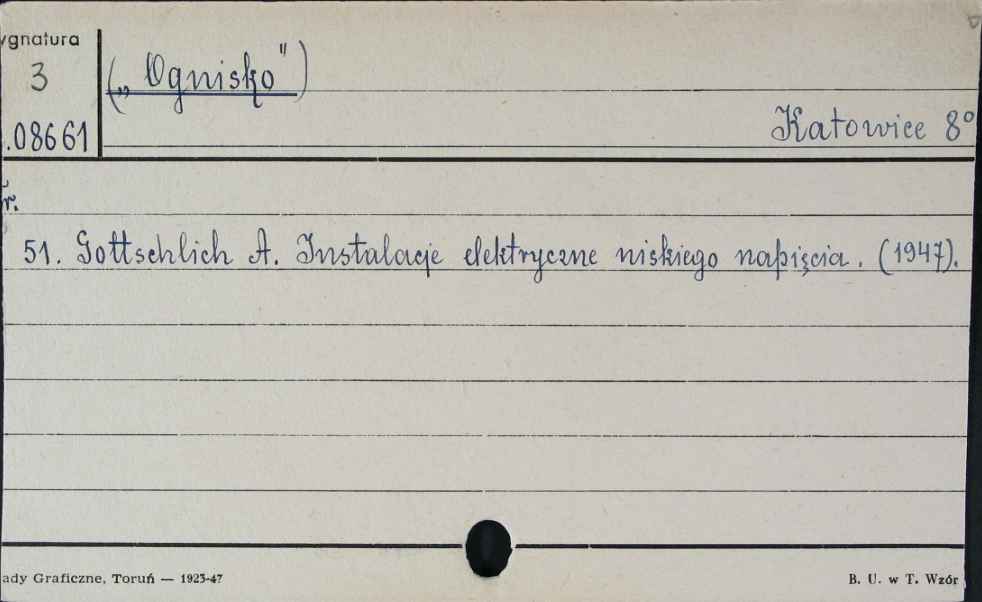 ygnatura
3
.08661
(„Ognisko")
Katowice 8°
r.
51. Gottschlich A. Instalacje elektryczne niskiego napięcia. (1947).
ady Graficzne, Toruń — 1923-47
B. U. w T. Wzór